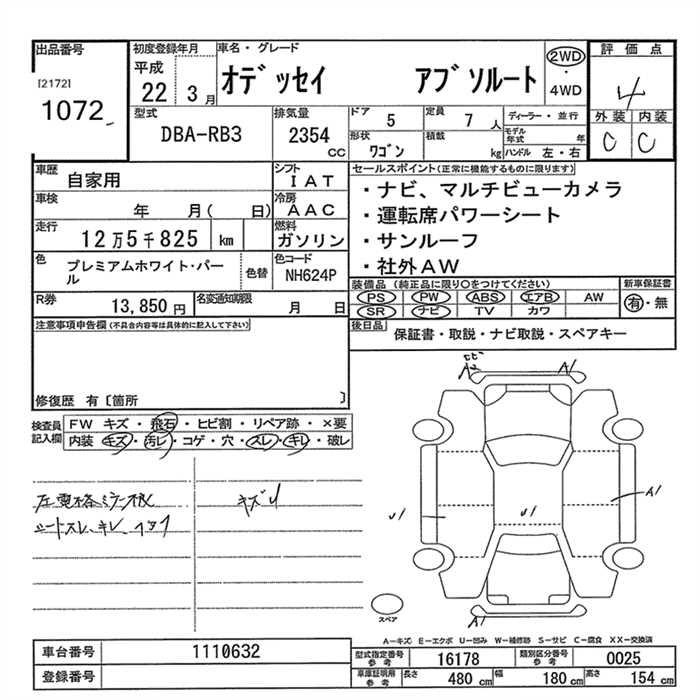 出品番号 初度登録年月 車名・グレード 評価点
[2172] 平成 オデッセイ アブソルート 2WD
1072 22 3月 ・ 4
4WD
型式 排気量 ドア 定員 ディーラー・並行 外装 内装
DBA-RB3 2354 5 7人 モデル年式 年 C C
CC 形状 積載
ワゴン kg ハンドル 左・右
車歴 シフト セールスポイント(正常に機能するものに限ります)
自家用 IAT ・ナビ、マルチビューカメラ
車検 冷房 ・運転席パワーシート
年 月( 日) AAC ・サンルーフ
走行 燃料 ・社外AW
12万5千825 km ガソリン
色 色替 色コード 装備品 (純正品に限り○をつけてください) 新車保証書
プレミアムホワイト・パール NH624P PS PW ABS エアB AW 有・無
R券 名変通知期限 SR ナビ TV カワ
13,850円 月 日 後日品
注意事項申告欄(不具合内容等は具体的に記入して下さい) 保証書・取説・ナビ取説・スペアキー
修復歴 有〔箇所 〕
検査員記入欄 FW キズ・飛石・ヒビ割・リペア跡・×要
内装 キズ・汚レ・コゲ・穴・スレ・キレ・破レ
キズU
シートスレ、キレ、
A1
A1
U1 U1
A1
スペア
A-キズ E-エクボ U-凹み W-補修跡 S-サビ C-腐食 XX-交換済
車台番号 1110632 型式指定番号 参考 16178 類別区分番号 参考 0025
登録番号 車庫証明用 参考 長さ 480 cm 幅 180 cm 高さ 154 cm